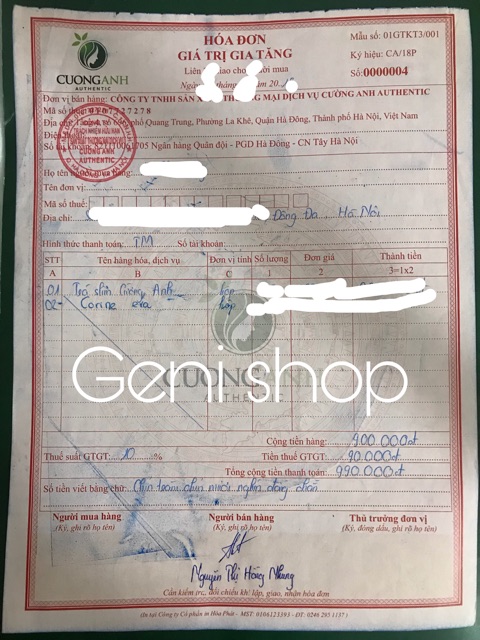 CUONGANH
AUTHENTIC
HÓA ĐƠN
GIÁ TRỊ GIA TĂNG
Liên giao cho người mua
Ngày tháng năm 20
Mẫu số: 01GTKT3/001
Ký hiệu: CA/18P
Số: 0000004
Đơn vị bán hàng: CÔNG TY TNHH SẢN THƯƠNG MẠI DỊCH VỤ CƯỜNG ANH AUTHENTIC
Mã số thuế:
Địa chỉ: phố Quang Trung, Phường La Khê, Quận Hà Đông, Thành phố Hà Nội, Việt Nam
Điện thoại:
Số tài khoản: Ngân hàng Quân đội - PGD Hà Đông - CN Tây Hà Nội
Họ tên người mua hàng:
Tên đơn vị:
Mã số thuế:
Địa chỉ: Đống Đa, Hà Nội
Hình thức thanh toán: TM Số tài khoản:
STT Tên hàng hóa, dịch vụ Đơn vị tính Số lượng Đơn giá Thành tiền
A B C 1 2 3=1x2
01 Trà slim Cường Anh hộp
02 Corine hộp
Genishop
CUONGANH
AUTHENTIC
Cộng tiền hàng: 900.000đ
Thuế suất GTGT: 10 % Tiền thuế GTGT: 90.000đ
Tổng cộng tiền thanh toán: 990.000đ
Số tiền viết bằng chữ: Chín trăm chín mươi nghìn đồng chẵn
Người mua hàng Người bán hàng Thủ trưởng đơn vị
(Ký, ghi rõ họ tên) (Ký, ghi rõ họ tên) (Ký, đóng dấu, ghi rõ họ tên)
Nguyễn Thị Hồng Nhung
Cần kiểm tra, đối chiếu khi lập, giao, nhận hóa đơn
(In tại Công ty Cổ phần in Hòa Phát - MST: 0106123393 - ĐT: 0246 295 1137)